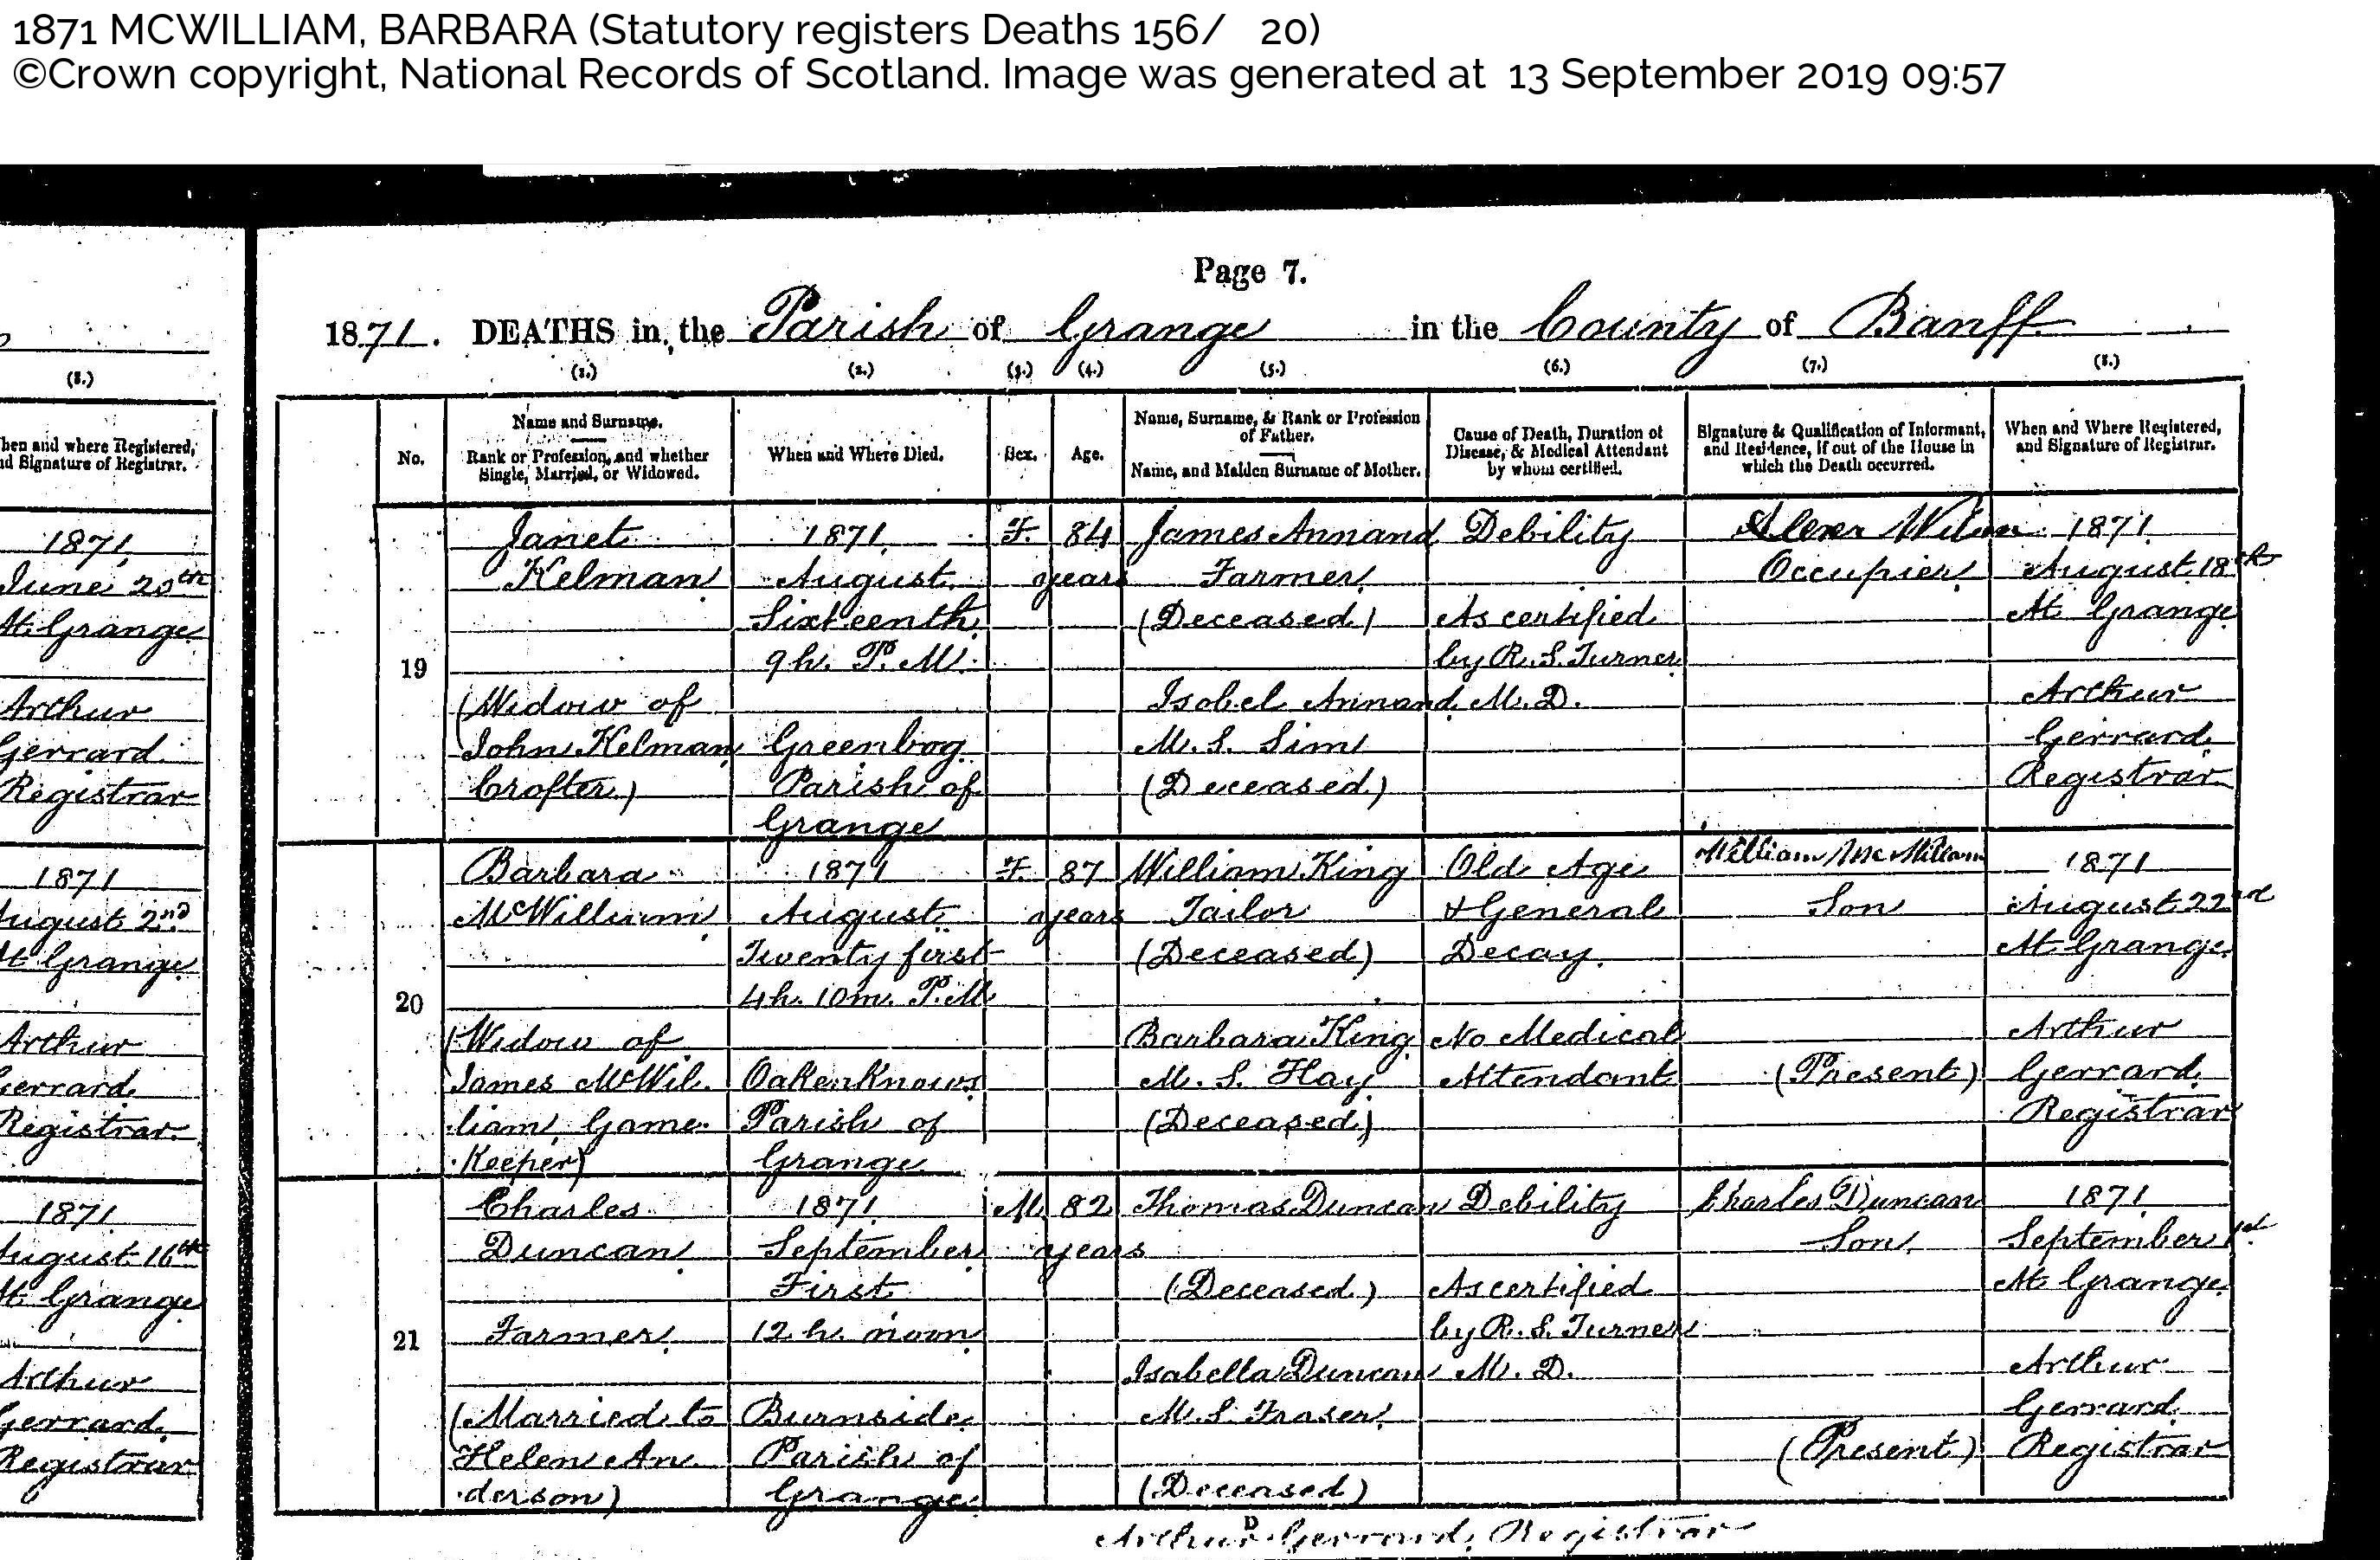 1871 MCWILLIAM, BARBARA (Statutory registers Deaths 156/ 20)
©Crown copyright, National Records of Scotland. Image was generated at 13 September 2019 09:57
Page 7.
1871. DEATHS in the Parish of Grange in the County of Banff
(8.)
(1.) (2.) (3.) (4.) (5.) (6.) (7.) (8.)
When and where Registered,
and Signature of Registrar.
No.
Name and Surname.
Rank or Profession, and whether
Single, Married, or Widowed.
When and Where Died.
Sex.
Age.
Name, Surname, & Rank or Profession
of Father.
Name, and Maiden Surname of Mother.
Cause of Death, Duration of
Disease, & Medical Attendant
by whom certified.
Signature & Qualification of Informant,
and Residence, if out of the House in
which the Death occurred.
When and Where Registered,
and Signature of Registrar.
1871
June 20th
At Grange
Arthur
Gerrard
Registrar
19
Janet
Kelman
(Widow of
John Kelman
Crofter)
1871
August
Sixteenth
9h. P.M.
Greenbog
Parish of
Grange
F.
84
years
James Annand
Farmer
(Deceased)
Isobel Annand
M.S. Sim
(Deceased)
Debility
As certified
by R.S. Turner
M.D.
Occupier
1871
August 18th
At Grange
Arthur
Gerrard
Registrar
1871
August 2nd
At Grange
Arthur
Gerrard
Registrar
20
Barbara
McWilliam
(Widow of
James McWil-
liam, Game-
Keeper)
1871
August
Twenty first
4h. 10m. P.M.
Oakenknows
Parish of
Grange
F.
87
years
William King
Tailor
(Deceased)
Barbara King
M.S. Hay
(Deceased)
Old Age
& General
Decay.
No Medical
Attendant
William McWilliam
Son
(Present)
1871
August 22nd
At Grange
Arthur
Gerrard
Registrar
1871
August 16th
At Grange
Arthur
Gerrard
Registrar
21
Charles
Duncan
Farmer
(Married to
Helen An-
derson)
1871
September
First
12 h. noon
Burnside
Parish of
Grange
M.
82
years
Thomas Duncan
(Deceased)
Isabella Duncan
M.S. Fraser
(Deceased)
Debility
As certified
by R.S. Turner
M.D.
Charles Duncan
Son
(Present)
1871
September 1st
At Grange
Arthur
Gerrard
Registrar
D
Arthur Gerrard, Registrar